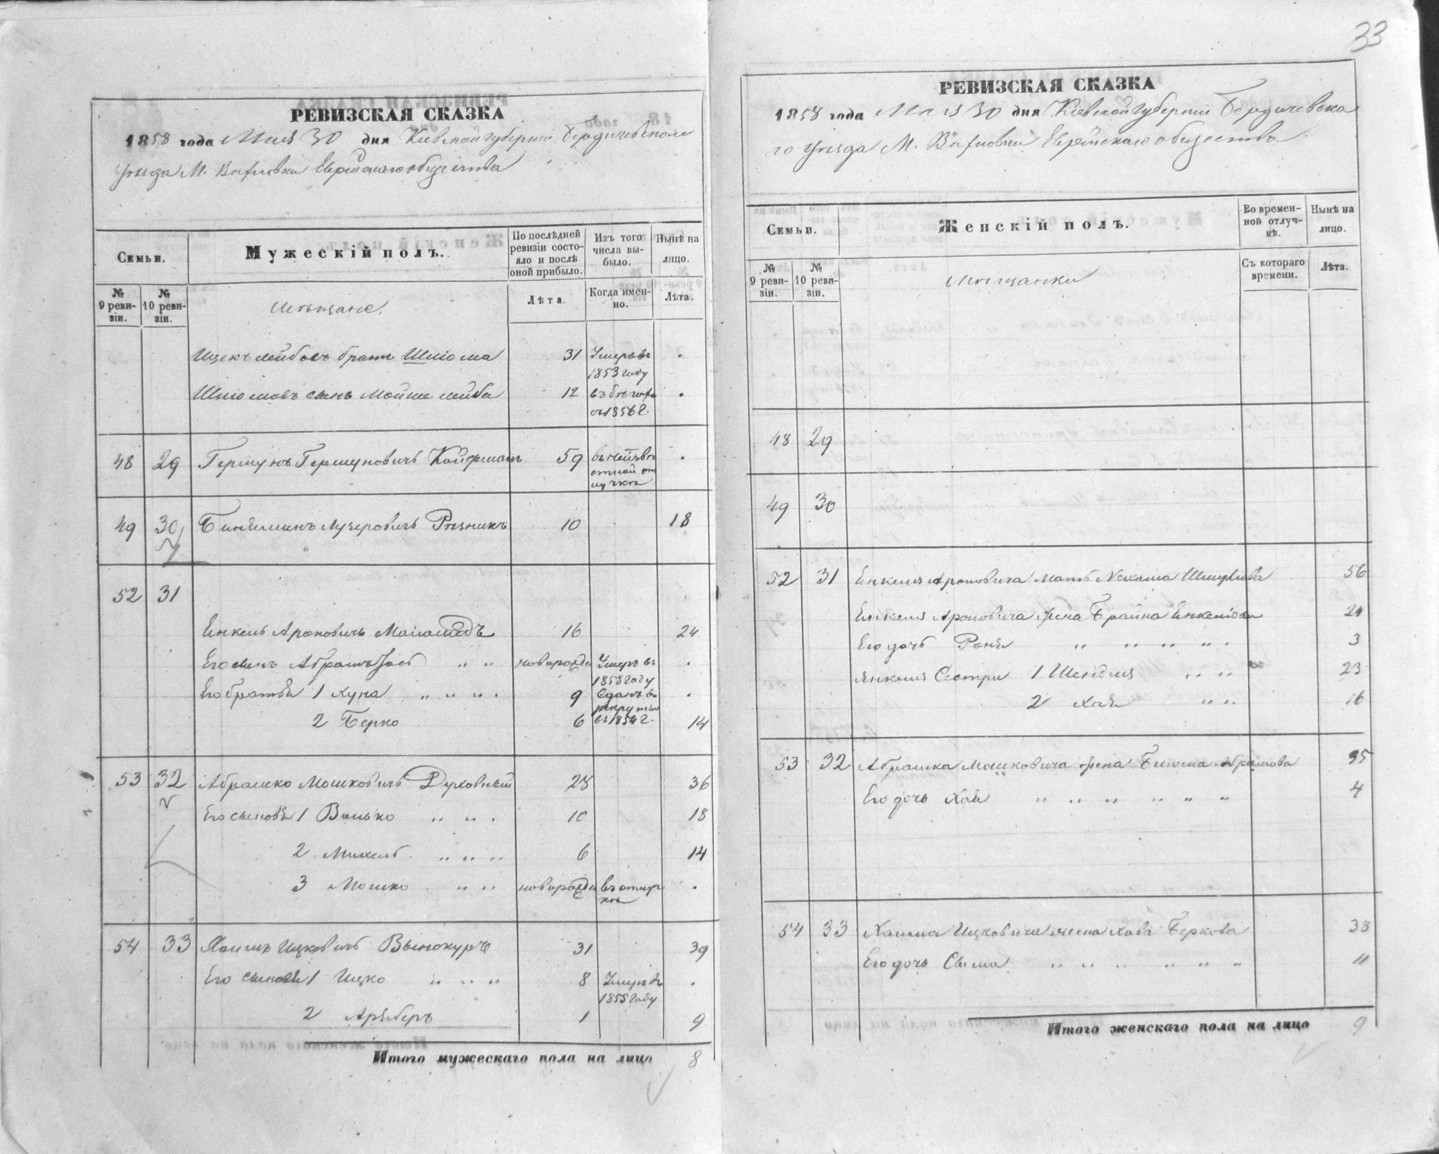 33
РЕВИЗСКАЯ СКАЗКА
1858 года Мая 30 дня Киевской губерніи Бердичевскаго
уезда М. Вахновки Еврейскаго общества
Семьи.
Мужескій полъ.
По последней ревизіи состояло и после оной прибыло.
Изъ того числа выбыло.
Ныне на лицо.
№ 9 ревизіи.
№ 10 ревизіи.
Мещане.
Лета.
Когда именно.
Лета.
Ицекъ Лейбовъ братъ Шліома 31 Умеръ въ 1853 году .
Шліомовъ сынъ Мойше Лейба 12 въ бегахъ съ 1856 г. .
48 29 Гершунъ Гершуновичъ Койфманъ 59 въ неизвестной отлучке .
49 30 Биніаминъ Лузеровичъ Резникъ 10 18
52 31
Енкель Ароновичъ Маламедъ 16 24
Его сынъ Абрамъ " " новорожд Умеръ въ 1853 году .
Его братья 1 Хуна " " " 9 Сданъ въ рекруты въ 1854 г. .
2 Берко 6 14
53 32 Абрамко Мошковичъ Духовный 28 36
Его сыновья 1 Волько " " 10 18
2 Михель " " " 6 14
3 Мошко " " новорожд въ отлучке .
54 33 Хаимъ Ицковичъ Винокуръ 31 39
Его сыновья 1 Ицко " " " 8 Умеръ въ 1855 году .
2 1 9
Итого мужескаго пола на лицо 8
РЕВИЗСКАЯ СКАЗКА
1858 года Мая 30 дня Кіевской губерніи Бердичевска
го уезда М. Вахновки Еврейскаго общества
Семьи.
Женскій полъ.
Во временной отлучке.
Ныне на лицо.
№ 9 ревизіи.
№ 10 ревизіи.
Мещанки
Съ котораго времени.
Лета.
48 29
49 30
52 31 Енкеля Ароновича мать Нехама Шмулёва 56
Енкеля Ароновича жена Брайна Енкелёва 24
Его дочь Роня " " " " 3
Янкеля Сестры 1 Шейдля " " 23
2 Хая " " 16
53 32 Абрамка Мошковича жена Абрамова 35
Его дочь Хая " " " " " " 4
54 33 Хаима Ицковича жена Хава Беркова 38
Его дочь Сыма " " " " " " 11
Итого женскаго пола на лицо 9